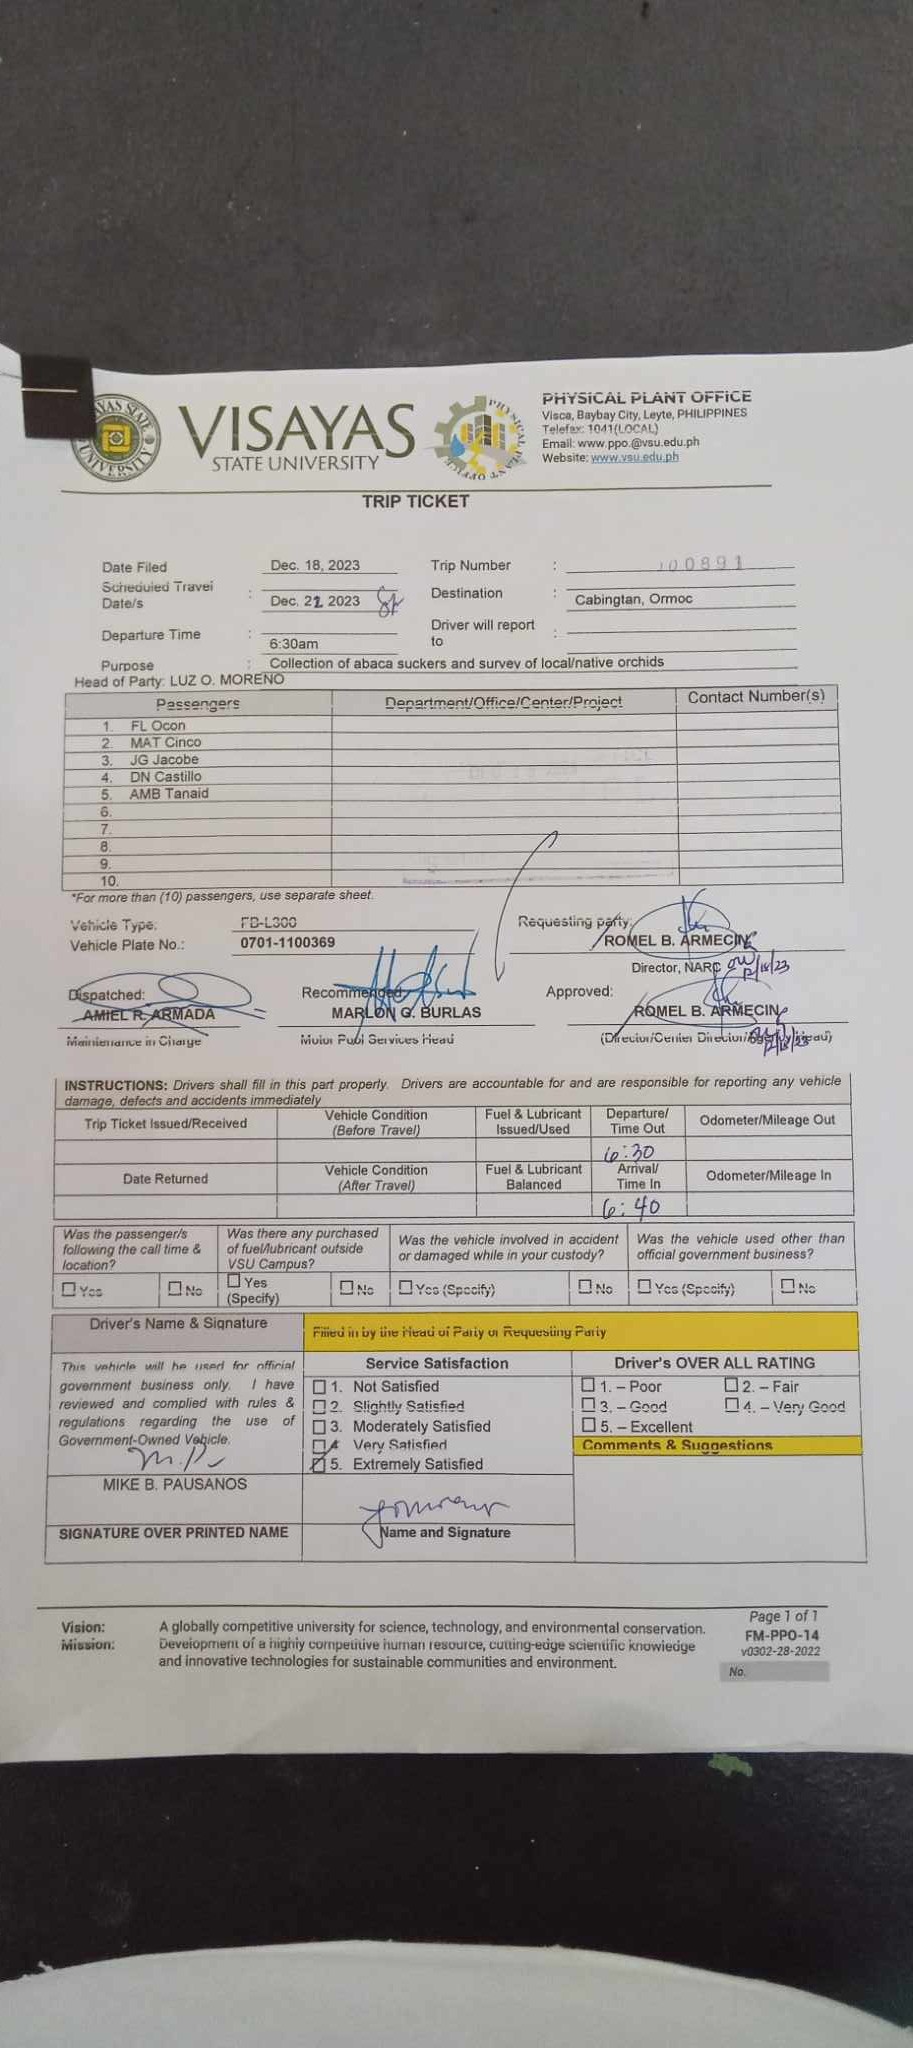 VISAYAS
STATE UNIVERSITY
PHYSICAL PLANT OFFICE
Visca, Baybay City, Leyte, PHILIPPINES
Telefax: 1041(LOCAL)
Email: www.ppo.@vsu.edu.ph
Website: www.vsu.edu.ph
TRIP TICKET
Date Filed Dec. 18, 2023 Trip Number : 100891
Scheduled Travel Date/s : Dec. 2 2023 Destination : Cabingtan, Ormoc
Departure Time : 6:30am Driver will report to :
Purpose : Collection of abaca suckers and survey of local/native orchids
Head of Party: LUZ O. MORENO
Passengers Department/Office/Center/Project Contact Number(s)
1. FL Ocon
2. MAT Cinco
3. JG Jacobe
4. DN Castillo
5. AMB Tanaid
6.
7.
8.
9.
10.
*For more than (10) passengers, use separate sheet.
Vehicle Type: FB-L300 Requesting party:
Vehicle Plate No.: 0701-1100369 ROMEL B. ARMECIN
Director, NARC 12/18/23
Dispatched: Recommended: Approved:
AMIEL R. ARMADA MARLON G. BURLAS ROMEL B. ARMECIN
Maintenance in Charge Motor Pool Services Head (Director/Center Director/Agency Head) 12/18/23
INSTRUCTIONS: Drivers shall fill in this part properly. Drivers are accountable for and are responsible for reporting any vehicle
damage, defects and accidents immediately
Trip Ticket Issued/Received Vehicle Condition (Before Travel) Fuel & Lubricant Issued/Used Departure/ Time Out Odometer/Mileage Out
6:30
Date Returned Vehicle Condition (After Travel) Fuel & Lubricant Balanced Arrival/ Time In Odometer/Mileage In
6:40
Was the passenger/s following the call time & location? Was there any purchased of fuel/lubricant outside VSU Campus? Was the vehicle involved in accident or damaged while in your custody? Was the vehicle used other than official government business?
Yes No Yes (Specify) No Yes (Specify) No Yes (Specify) No
Driver's Name & Signature Filled in by the Head of Party or Requesting Party
This vehicle will be used for official
government business only. I have
reviewed and complied with rules &
regulations regarding the use of
Government-Owned Vehicle.
MIKE B. PAUSANOS
SIGNATURE OVER PRINTED NAME
Service Satisfaction
1. Not Satisfied
2. Slightly Satisfied
3. Moderately Satisfied
4. Very Satisfied
5. Extremely Satisfied
Name and Signature
Driver's OVER ALL RATING
1. – Poor 2. – Fair
3. – Good 4. – Very Good
5. – Excellent
Comments & Suggestions
Vision: A globally competitive university for science, technology, and environmental conservation.
Mission: Development of a highly competitive human resource, cutting-edge scientific knowledge
and innovative technologies for sustainable communities and environment.
Page 1 of 1
FM-PPO-14
v0302-28-2022
No.